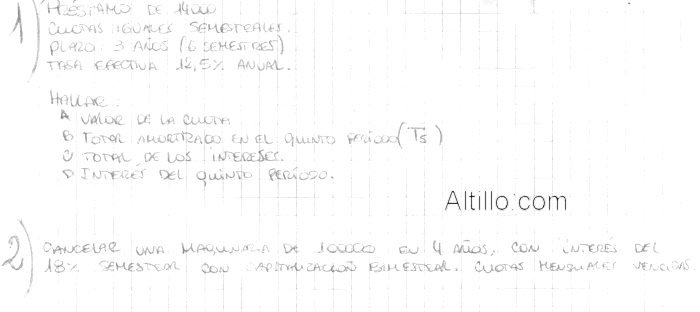 1) PRÉSTAMO DE 14000
CUOTAS IGUALES SEMESTRALES.
PLAZO: 3 AÑOS (6 SEMESTRES)
TASA EFECTIVA 12,5% ANUAL.
HALLAR:
A VALOR DE LA CUOTA
B TOTAL AMORTIZADO EN EL QUINTO PERÍODO (T5)
C TOTAL DE LOS INTERESES.
D INTERÉS DEL QUINTO PERÍODO.
Altillo.com
2) CANCELAR UNA MAQUINARIA DE 100000 EN 4 AÑOS, CON INTERÉS DEL
18% SEMESTRAL CON CAPITALIZACIÓN BIMESTRAL. CUOTAS MENSUALES VENCIDAS.